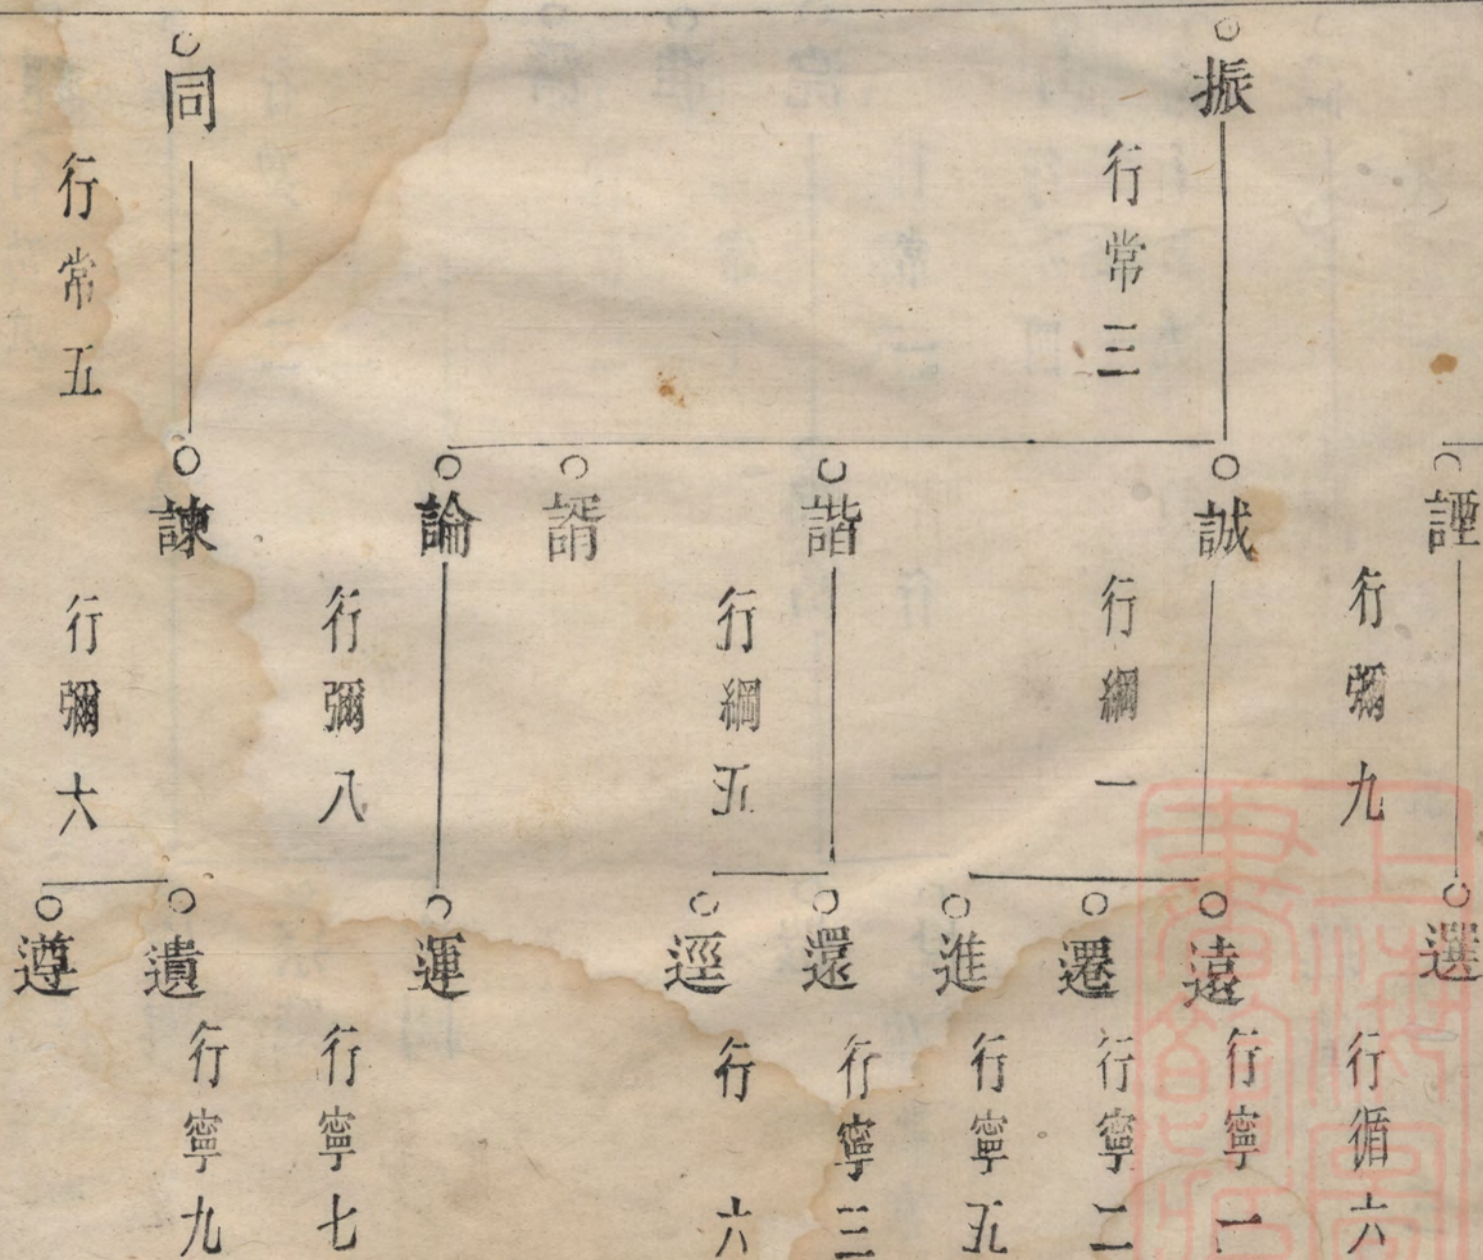 振
行常三
同
行常五
諲
行彌九
誠
行綱一
諧
行綱五
諝
論
行彌八
諫
行彌六
選
行循六
遠
行寧一
遷
行寧二
進
行寧五
還
行寧三
逕
行 六
運
行寧七
遺
行寧九
遵